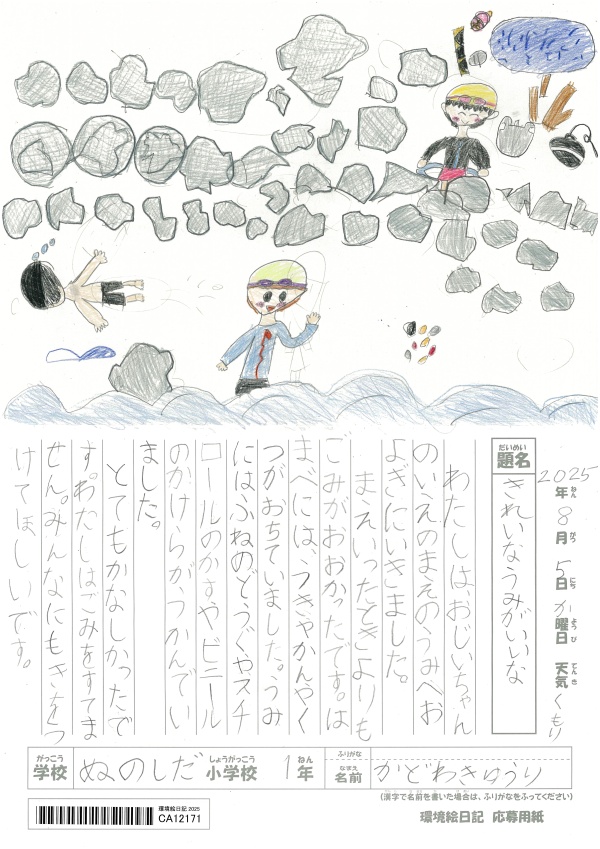 2025年8月5日か曜日 天気くもり
ねん がつ にち ようび てんき
だいめい
題名
きれいなうみがいいな
わたしは、おじいちゃん
のいえのまえのうみへお
よぎにいきました。
まえいったときよりも
ごみがおおかったです。は
まべには、うきやかんやく
つがおちていました。うみ
にはふねのどうぐやスチ
ロールのかすやビニール
のかけらが、つかんでい
ました。
とてもかなしかったで
す。わたしはごみをすてま
せん。みんなにもきをつ
けてほしいです。
がっこう しょうがっこう ねん ふりがな
学校 ぬのしだ 小学校 1年 なまえ 名前 かどわきゆうり
(漢字で名前を書いた場合は、ふりがなをふってください)
環境絵日記 応募用紙
環境絵日記 2025
CA12171